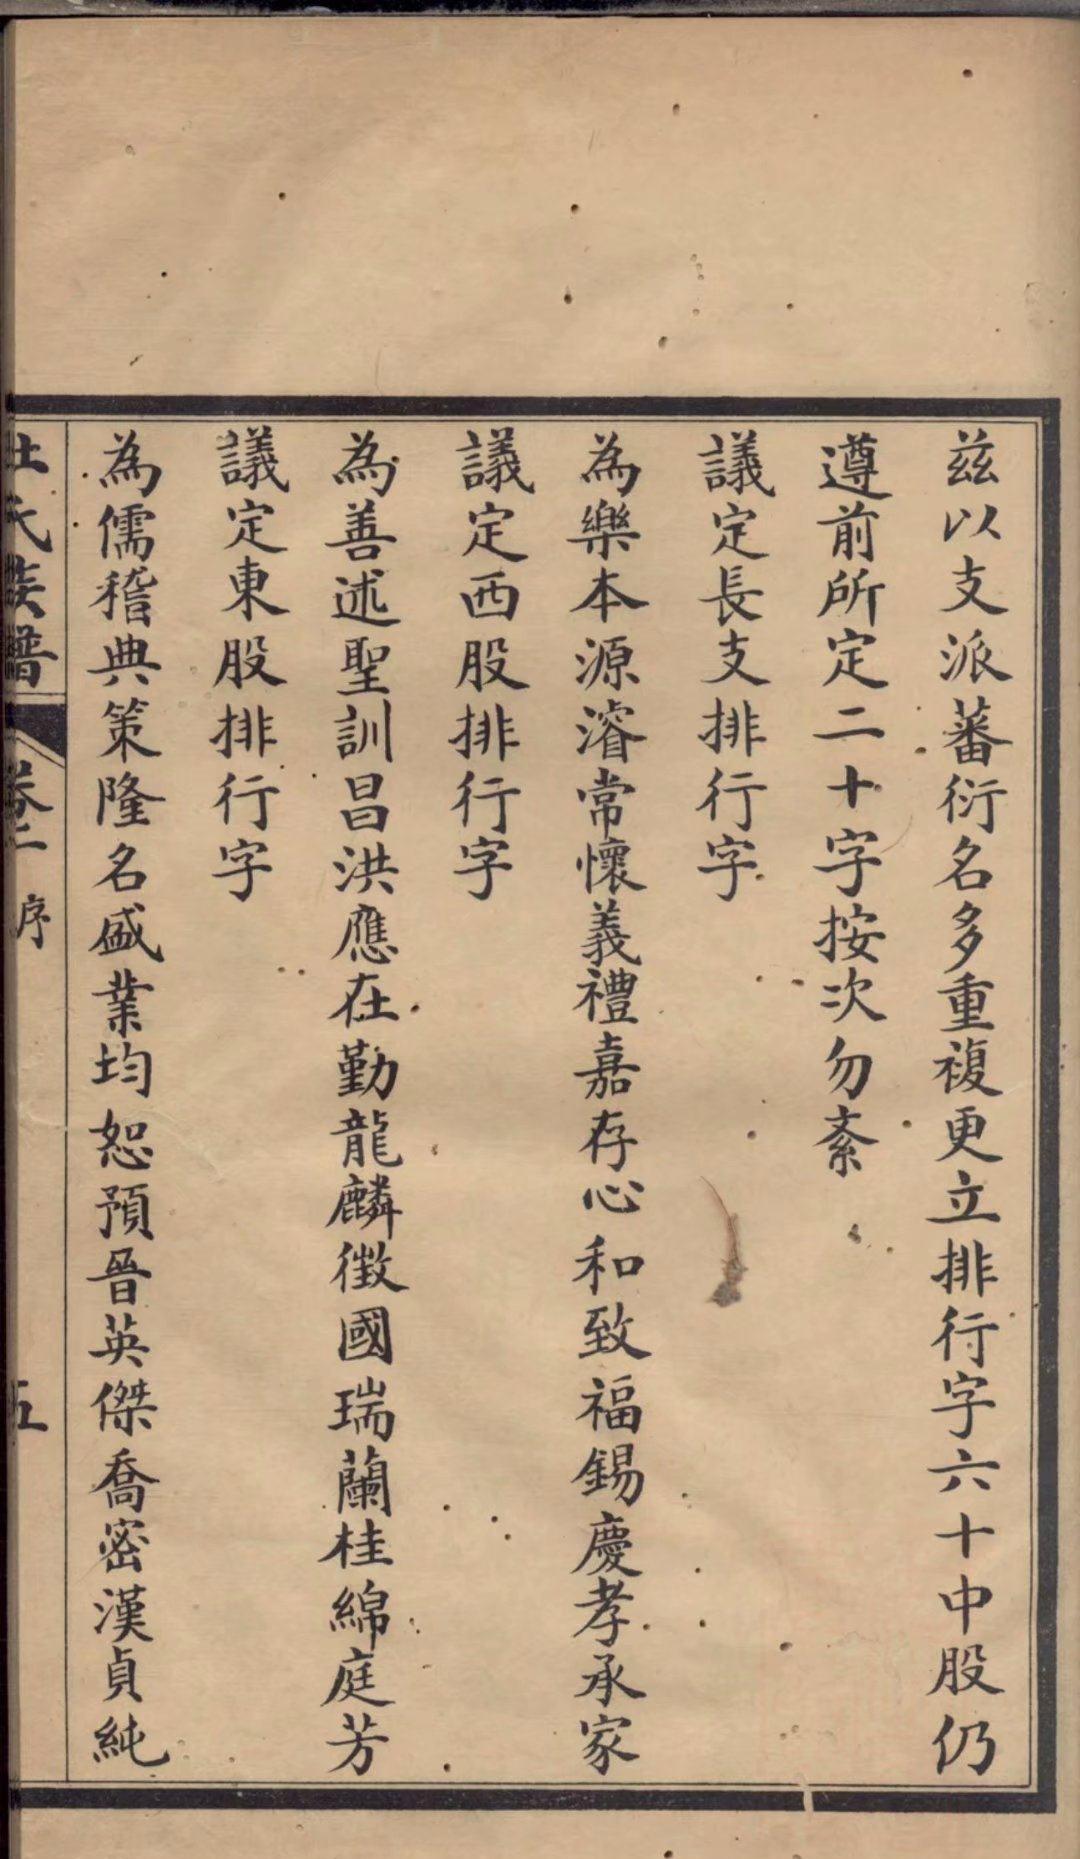 茲以支派蕃衍名多重複更立排行字六十中股仍
遵前所定二十字按次勿紊
議定長支排行字
為樂本源濬常懷義禮嘉存心和致福錫慶孝承家
議定西股排行字
為善述聖訓昌洪應在勤龍麟徵國瑞蘭桂綿庭芳
議定東股排行字
為儒稽典策隆名盛業均恕預晉英傑喬密漢貞純
杜氏族譜 卷二 序 五